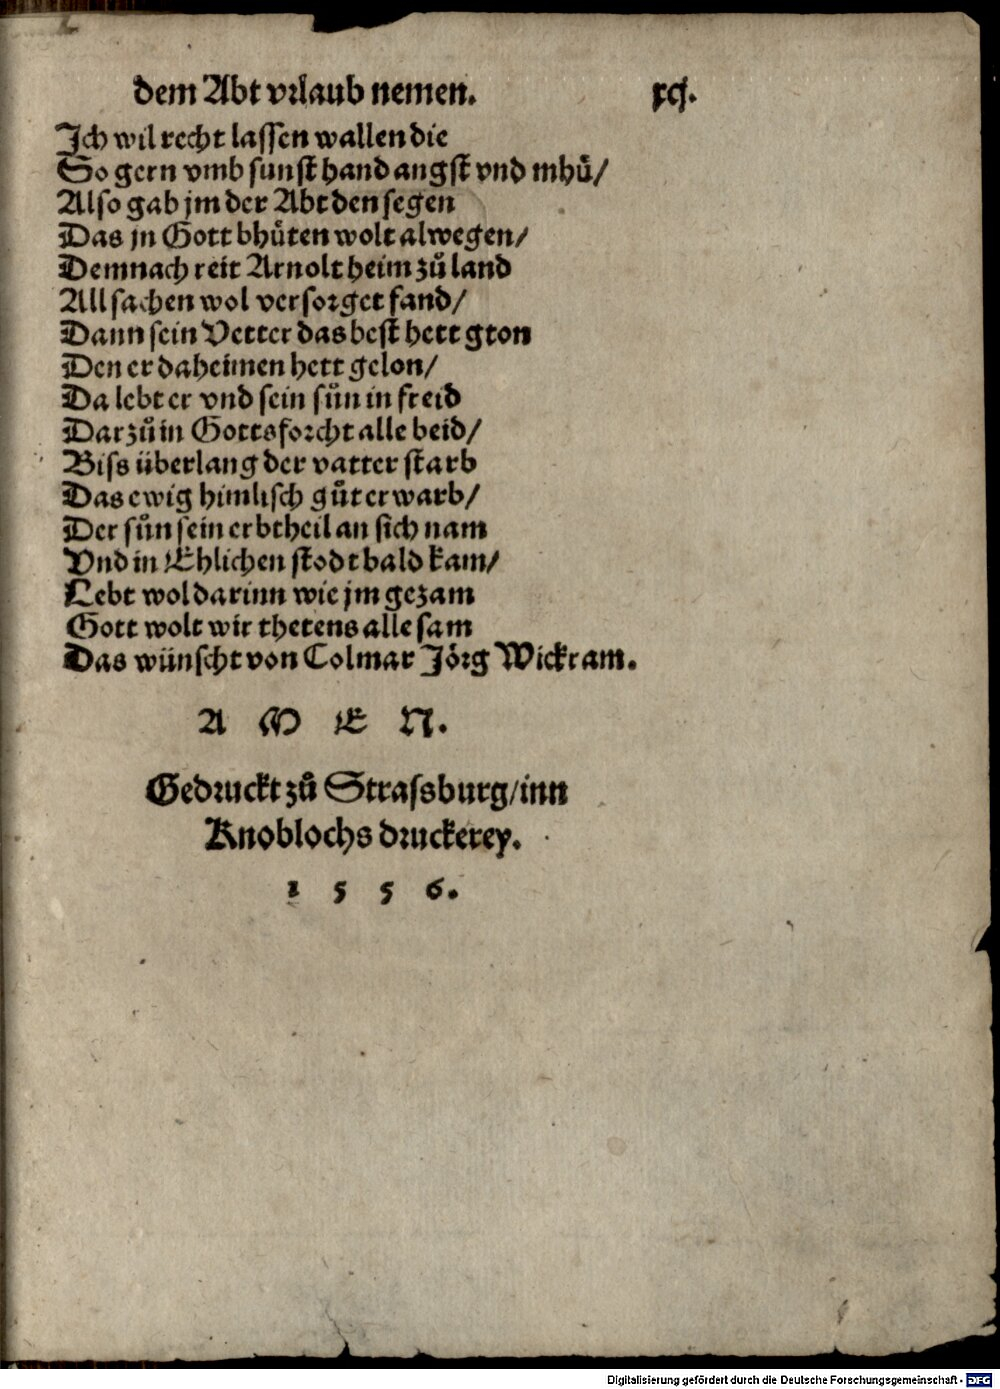 dem Abt vrlaub nemen. xcj.
Ich wil recht lassen wallen die
So gern vmb sunst hand angst vnd mhuͤ/
Also gab jm der Abt den segen
Das jn Gott bhuͤten wolt alwegen/
Demnach reit Arnolt heim zuͦ land
All sachen wol versorget fand/
Dann sein Vetter das best hett gton
Den er daheimen hett gelon/
Da lebt er vnd sein suͦn in freid
Darzuͦ in Gottsforcht alle beid/
Biss überlang der vatter starb
Das ewig himlisch guͦt erwarb/
Der suͦn sein erbtheil an sich nam
Vnd in Ehlichen stodt bald kam/
Lebt wol darinn wie jm gezam
Gott wolt wir thetens alle sam
Das wünscht von Colmar Jörg Wickram.
A M E N.
Gedruckt zuͦ Strassburg/inn
Knoblochs druckerey.
1 5 5 6.
Digitalisierung gefördert durch die Deutsche Forschungsgemeinschaft - DFG